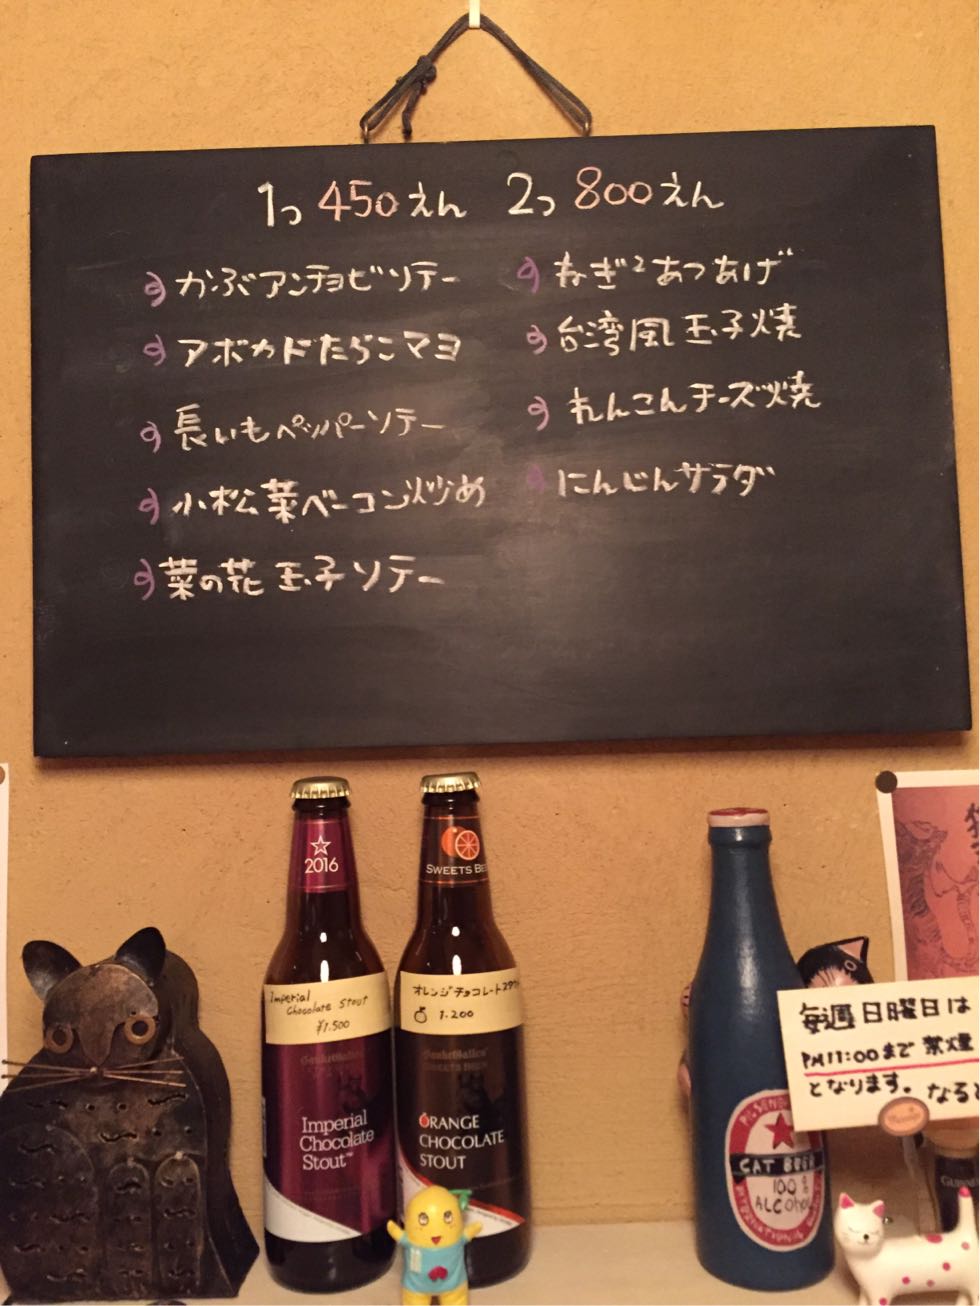 1つ 450えん 2つ 800えん
かぶアンチョビソテー
アボカドたらこマヨ
長いもペッパーソテー
小松菜ベーコン炒め
菜の花玉子ソテー
ねぎ²あつあげ
台湾風玉子焼
れんこんチーズ焼
にんじんサラダ
2016
Imperial
Chocolate Stout
¥1.500
SanktGallen
Imperial
Chocolate
Stout™
SWEETS BE
オレンジチョコレート
1.200
SanktGallen
SWEETS BEER
ORANGE
CHOCOLATE
STOUT
CAT BEER
100%
ALCOHOL
毎週日曜日は
PM11:00まで禁煙
となります。なると